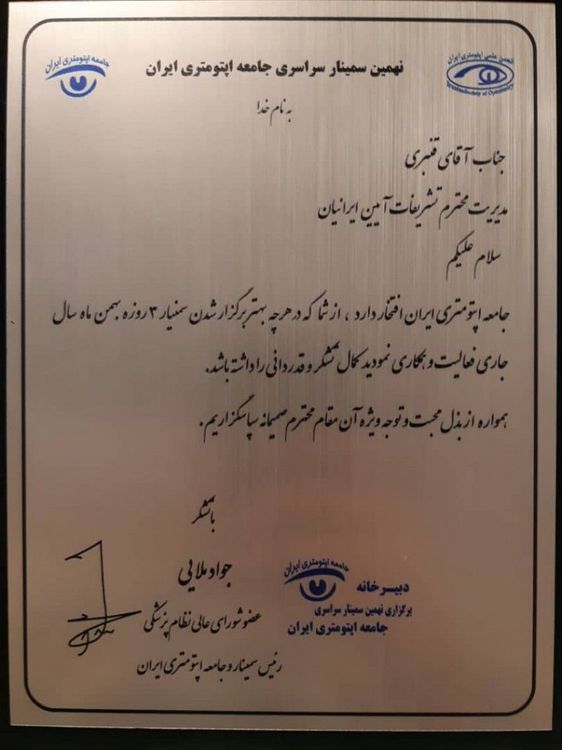 نهمین سمینار سراسری جامعه اپتومتری ایران
جامعه اپتومتری ایران
انجمن علمی اپتومتری ایران
به نام خدا
جناب آقای قنبری
مدیریت محترم تشریفات آیین ایرانیان
سلام علیکم
جامعه اپتومتری ایران افتخار دارد ، از شما که در هرچه بهتر برگزار شدن سمنیار ۳ روزه بهمن ماه سال
جاری فعالیت و همکاری نمودید کمال تشکر و قدردانی را داشته باشد.
همواره از بذل محبت و توجه ویژه آن مقام محترم صمیمانه سپاسگزاریم.
باتشکر
جواد ملایی
عضو شورای عالی نظام پزشکی
رئیس سمینار و جامعه اپتومتری ایران
جامعه اپتومتری ایران
دبیرخانه
برگزاری نهمین سمینار سراسری
جامعه اپتومتری ایران